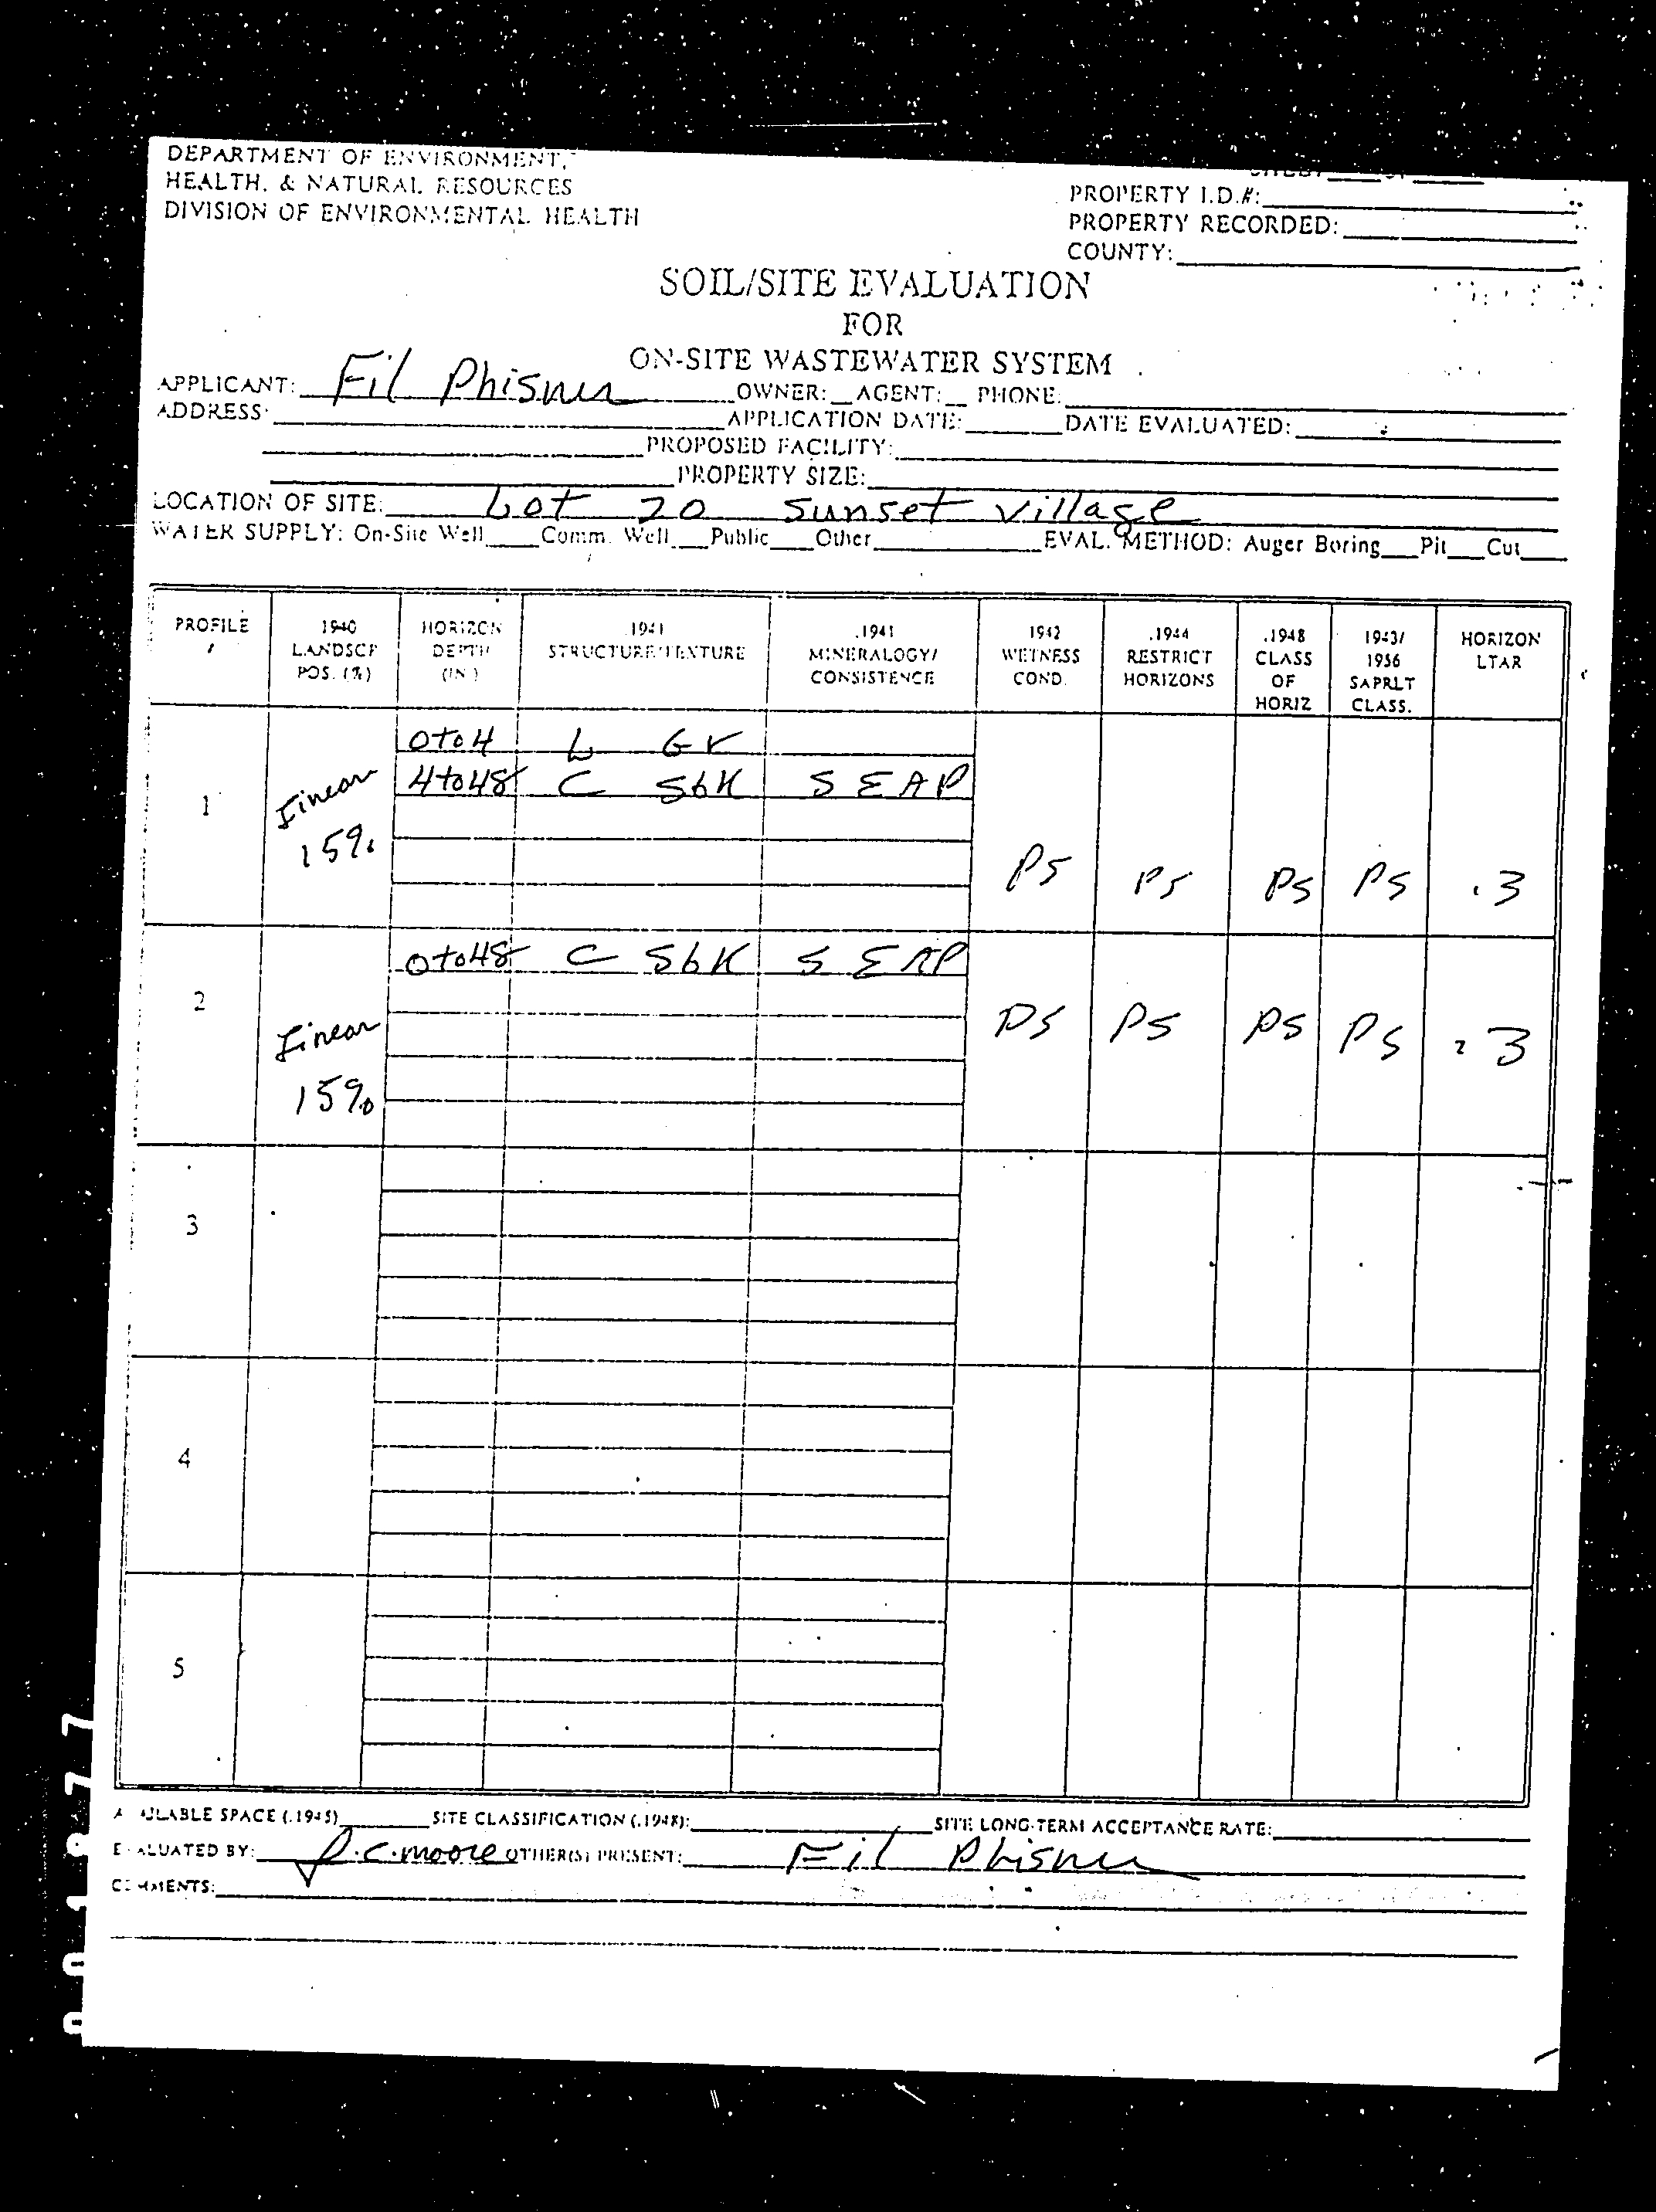 DEPARTMENT OF ENVIRONMENT,
HEALTH, & NATURAL RESOURCES
DIVISION OF ENVIRONMENTAL HEALTH
PROPERTY I.D.#:
PROPERTY RECORDED:
COUNTY:
SOIL/SITE EVALUATION
FOR
ON-SITE WASTEWATER SYSTEM
APPLICANT: Fil Phisner OWNER: AGENT: PHONE:
ADDRESS: APPLICATION DATE: DATE EVALUATED:
PROPOSED FACILITY:
PROPERTY SIZE:
LOCATION OF SITE: Lot 20 Sunset Village
WATER SUPPLY: On-Site Well Comm. Well Public Other EVAL. METHOD: Auger Boring Pit Cut
PROFILE 1940 LANDSCP POS. (%) HORIZON DEPTH (IN.) .1941 STRUCTURE/TEXTURE .1941 MINERALOGY/ CONSISTENCE 1942 WETNESS COND. .1944 RESTRICT HORIZONS .1948 CLASS OF HORIZ 1943/ 1956 SAPRLT CLASS. HORIZON LTAR
0 to 4 L Gr
1 Linear 4 to 48 C Sbk S E A P
15% PS PS PS PS .3
0 to 48 C Sbk S E A P
2 Linear PS PS PS PS .3
15%
3
4
5
AVAILABLE SPACE (.1945) SITE CLASSIFICATION (.1948): SITE LONG-TERM ACCEPTANCE RATE:
EVALUATED BY: C. moore OTHER(S) PRESENT: Fil Phisner
COMMENTS: